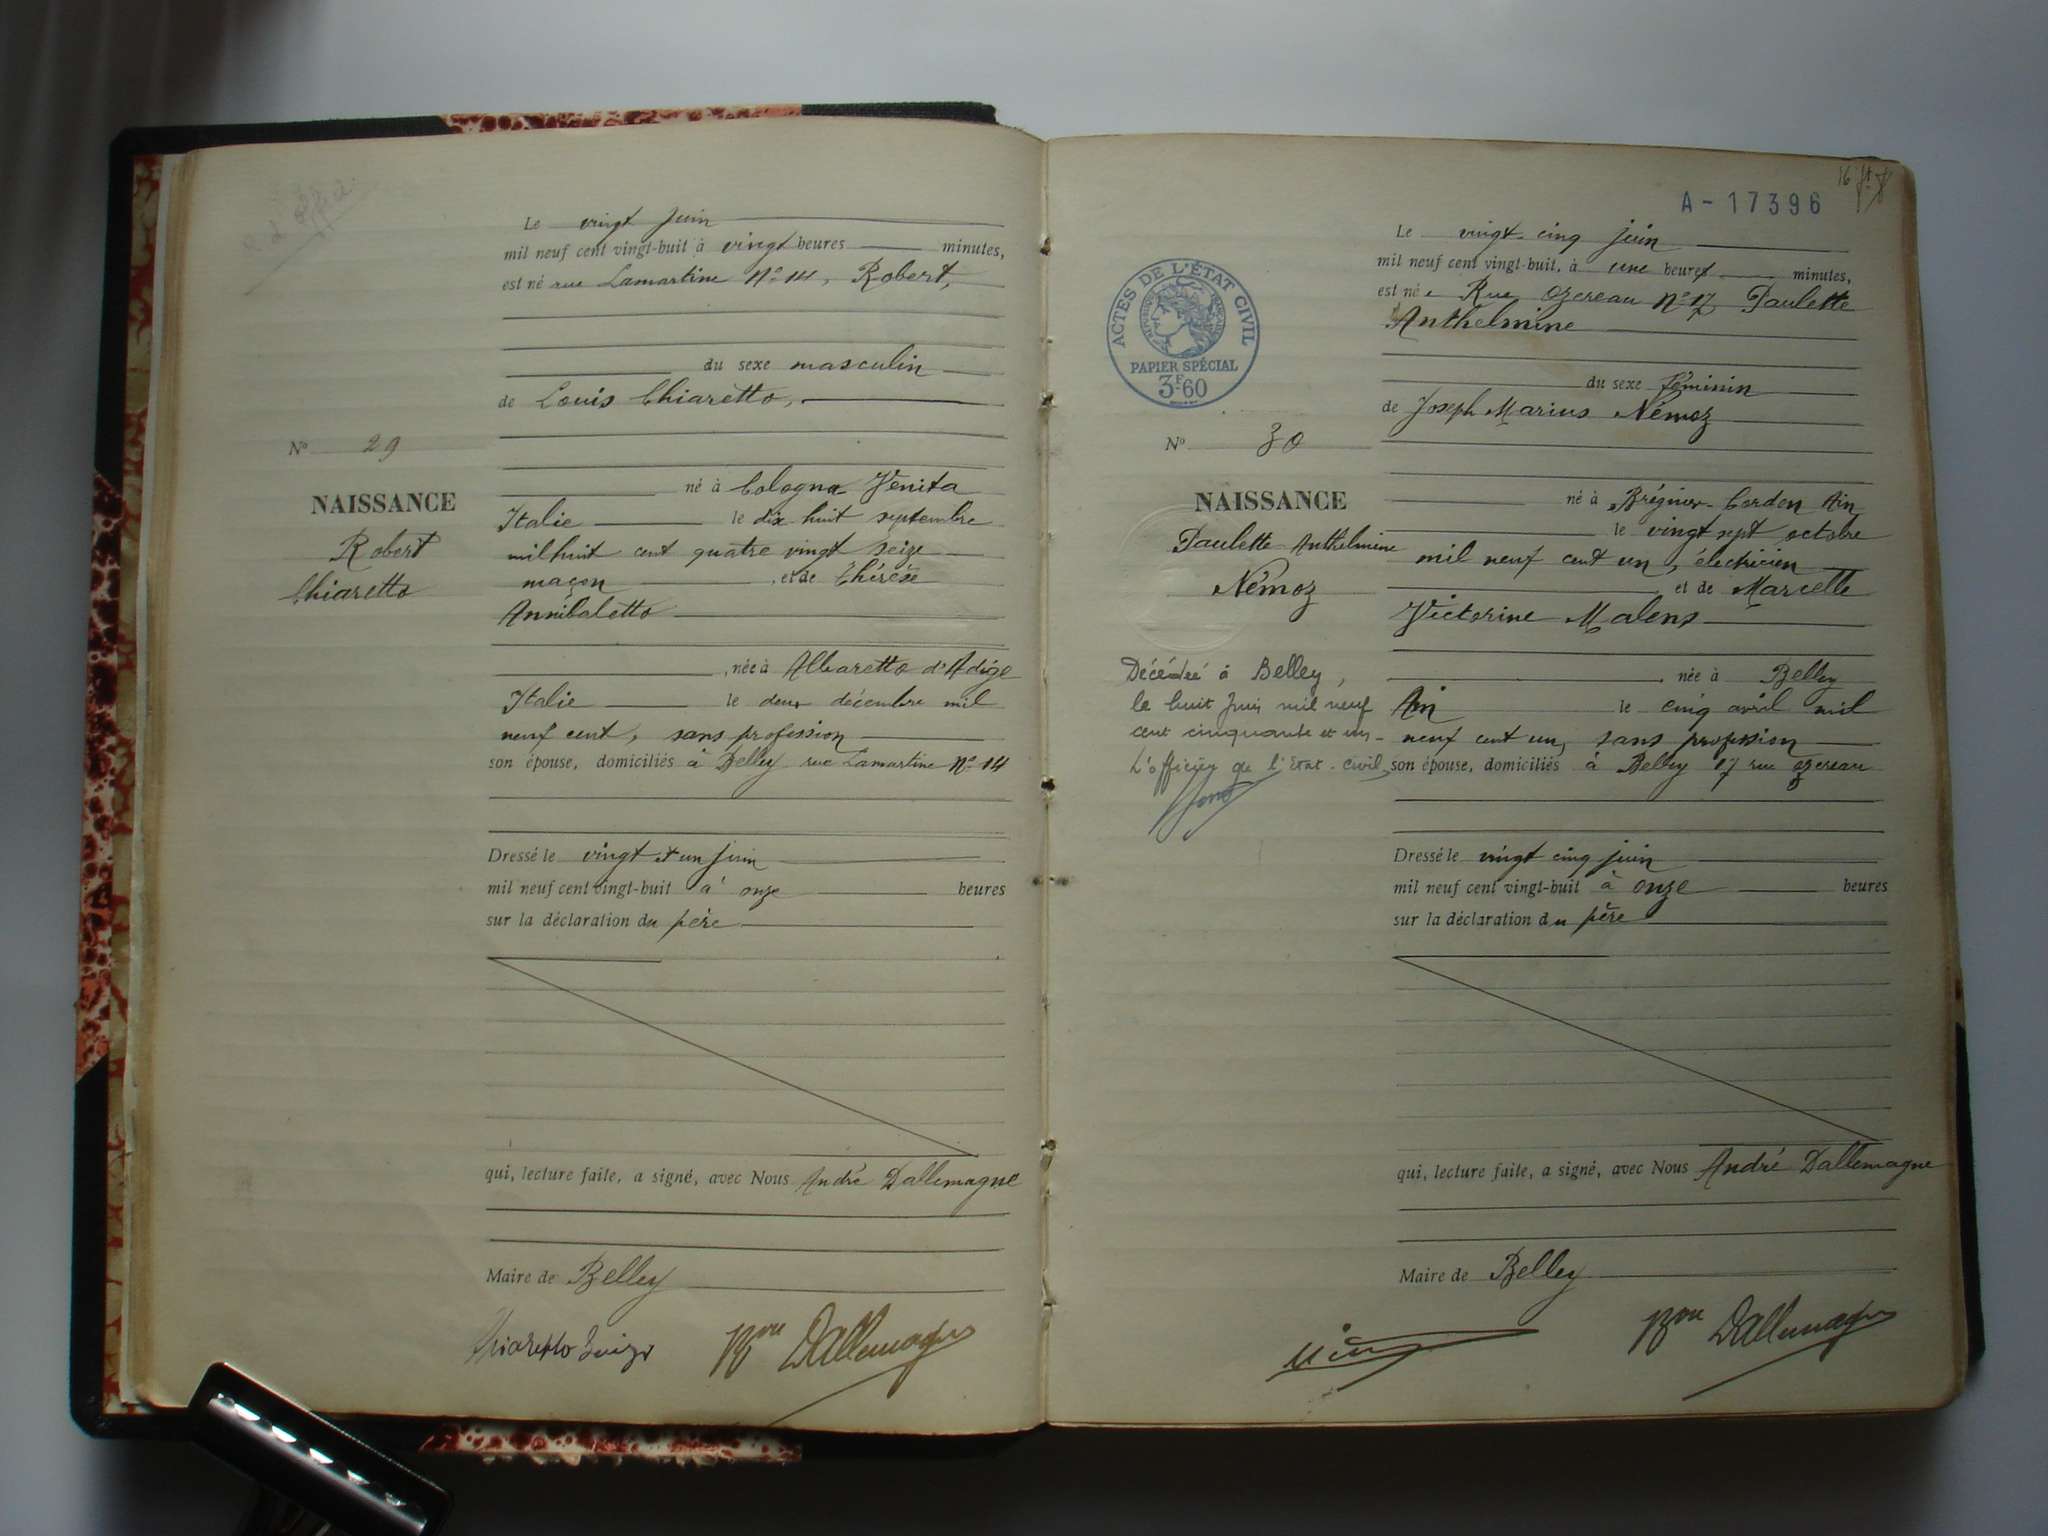 Le vingt juin
mil neuf cent vingt-huit à vingt heures minutes,
est né rue Lamartine N° 14, Robert,
du sexe masculin
de Louis Chiaretto,
N° 29
NAISSANCE
Robert
Chiaretto
né à Cologna Venita
Italie le dix huit septembre
mil huit cent quatre vingt seize
maçon, et de Thérèse
Annibaletto
, née à Albaretto d'Adige
Italie le deux décembre mil
neuf cent, sans profession
son épouse, domiciliés à Belley rue Lamartine N° 14
Dressé le vingt et un juin
mil neuf cent vingt-huit à onze heures
sur la déclaration du père
qui, lecture faite, a signé, avec Nous André Dallemagne
Maire de Belley
Chiaretto Luigi Bon Dallemagne
A-17396
ACTES DE L'ÉTAT CIVIL
RÉPUBLIQUE FRANÇAISE
PAPIER SPÉCIAL
3F60
Le vingt-cinq juin
mil neuf cent vingt-huit, à une heures minutes,
est née Rue Ozereau N° 17 Paulette
Anthelmine
du sexe féminin
de Joseph Marius Némoz
N° 30
NAISSANCE
Paulette Anthelmine
Némoz
né à Brégnier-Cordon Ain
le vingt sept octobre
mil neuf cent un, électricien
et de Marcelle
Victorine Malens
Décédée à Belley,
le huit Juin mil neuf
cent cinquante et un
L'officier de l'Etat-civil,
, née à Belley
Ain le cinq avril mil
neuf cent un, sans profession
son épouse, domiciliés à Belley 17 rue Ozereau
Dressé le vingt cinq juin
mil neuf cent vingt-huit à onze heures
sur la déclaration du père
qui, lecture faite, a signé, avec Nous André Dallemagne
Maire de Belley
Bon Dallemagne